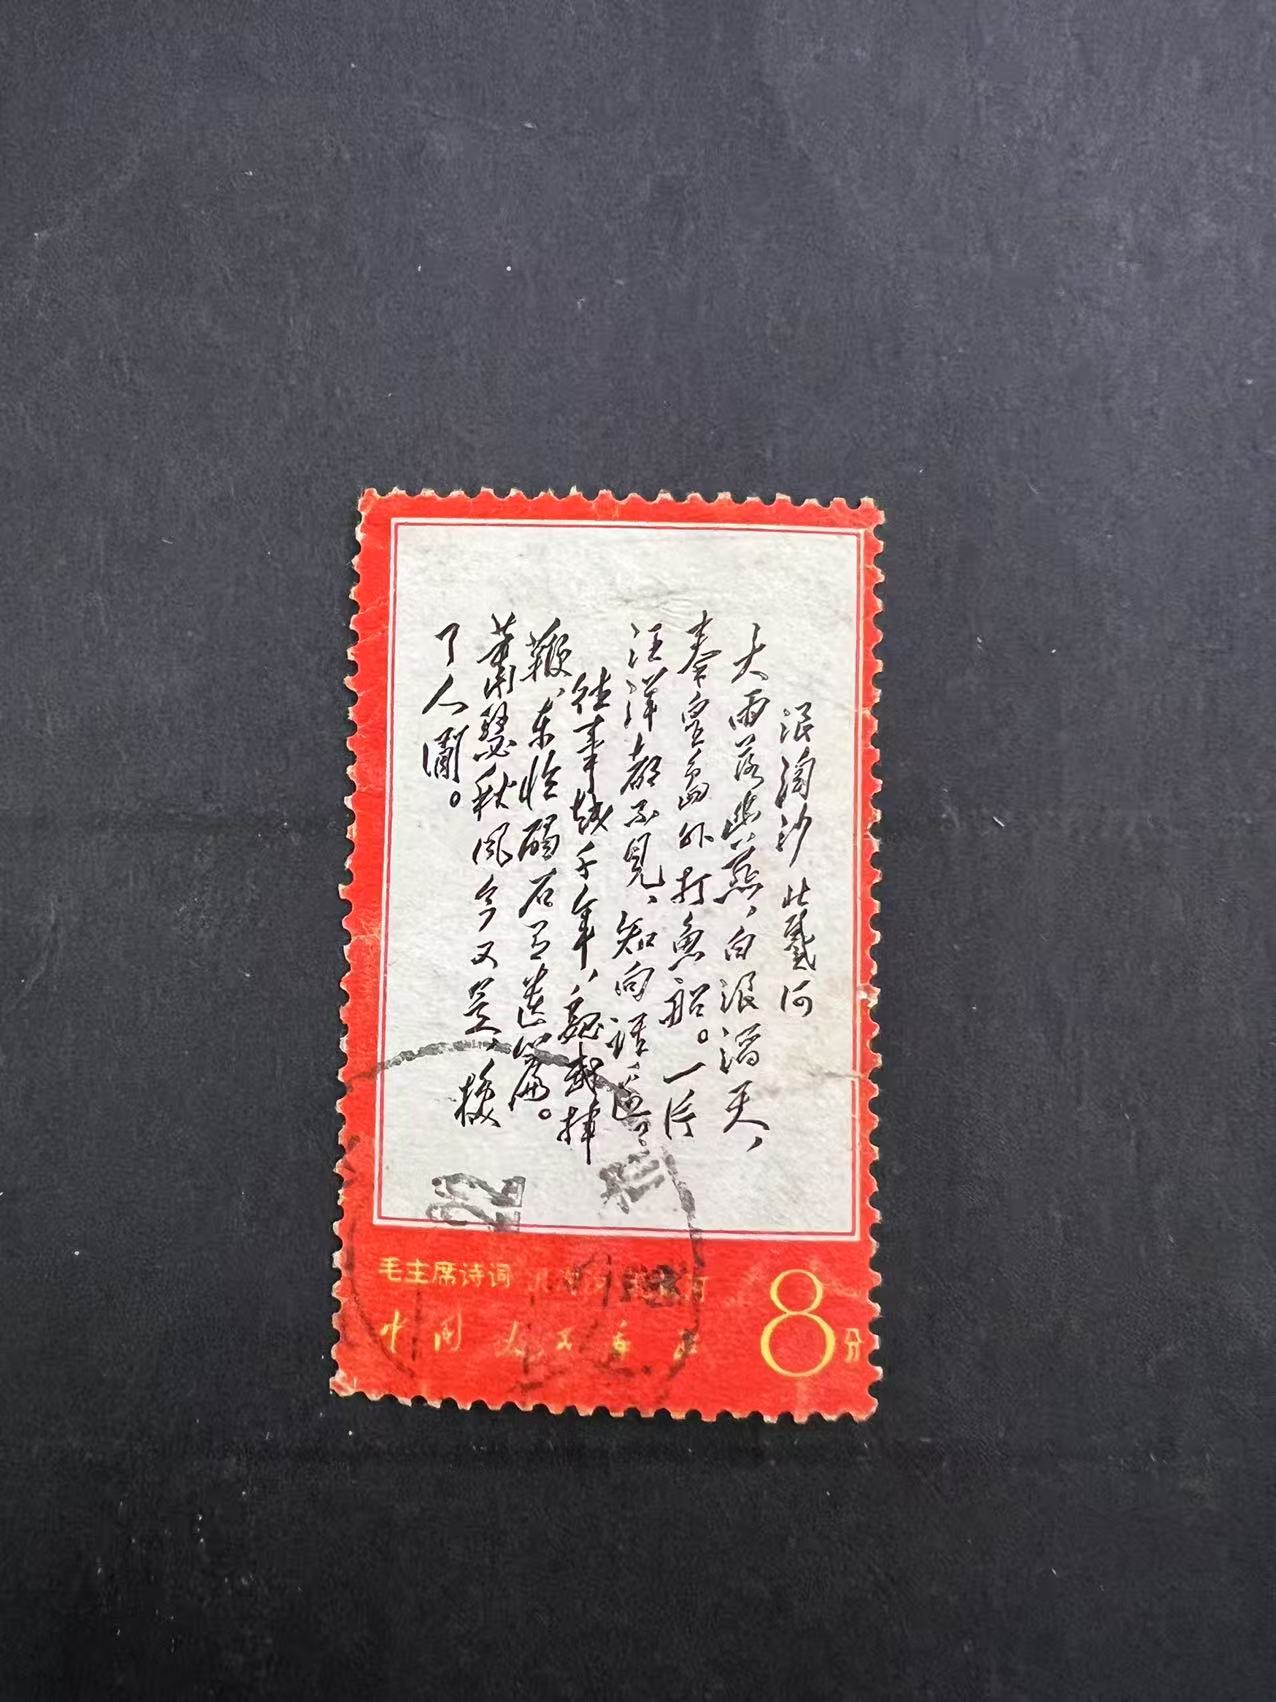 浪淘沙 北戴河
大雨落幽燕，白浪滔天，
秦皇岛外打鱼船。一片
汪洋都不见，知向谁边？
往事越千年，魏武挥
鞭，东临碣石有遗篇。
萧瑟秋风今又是，换
了人间。
毛主席诗词
中国人民邮政
8分